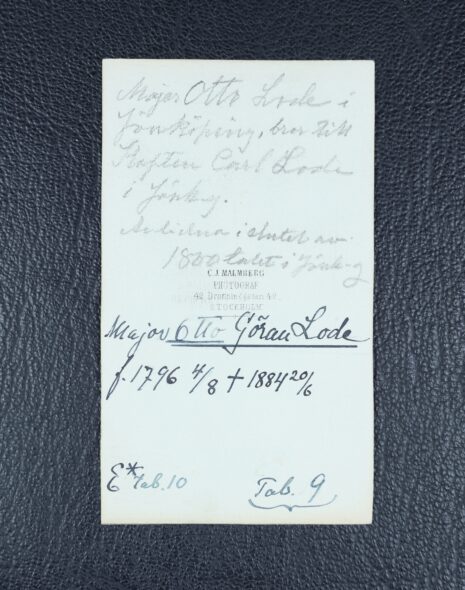 Major Otto Lode i
Jönköping, bror till
Kapten Carl Lode
i Jönk-g.
i slutet av
1800 talet i Jönk-g
C. J. MALMBERG
PHOTOGRAF
42 Drottninggatan 42
STOCKHOLM
Major Otto Göran Lode
f. 1796 4/8 + 1884 20/6
E* Tab. 10
Tab. 9